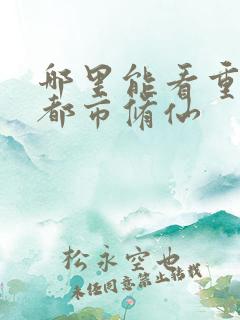 哪里能看重
都市脩仙
松永空也
未经同意禁止转载